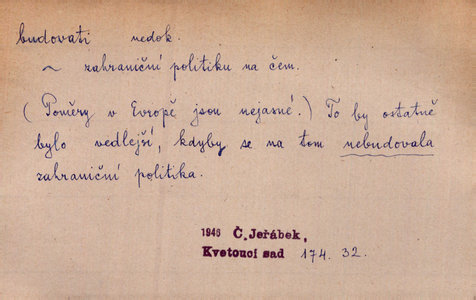 budovati nedok.
~ zahraniční politiku na čem.
(Poměry v Evropě jsou nejasné.) To by ostatně
bylo vedlejší, kdyby se na tom nebudovala
zahraniční politika.
1946 Č. Jeřábek,
Kvetoucí sad 174. 32.